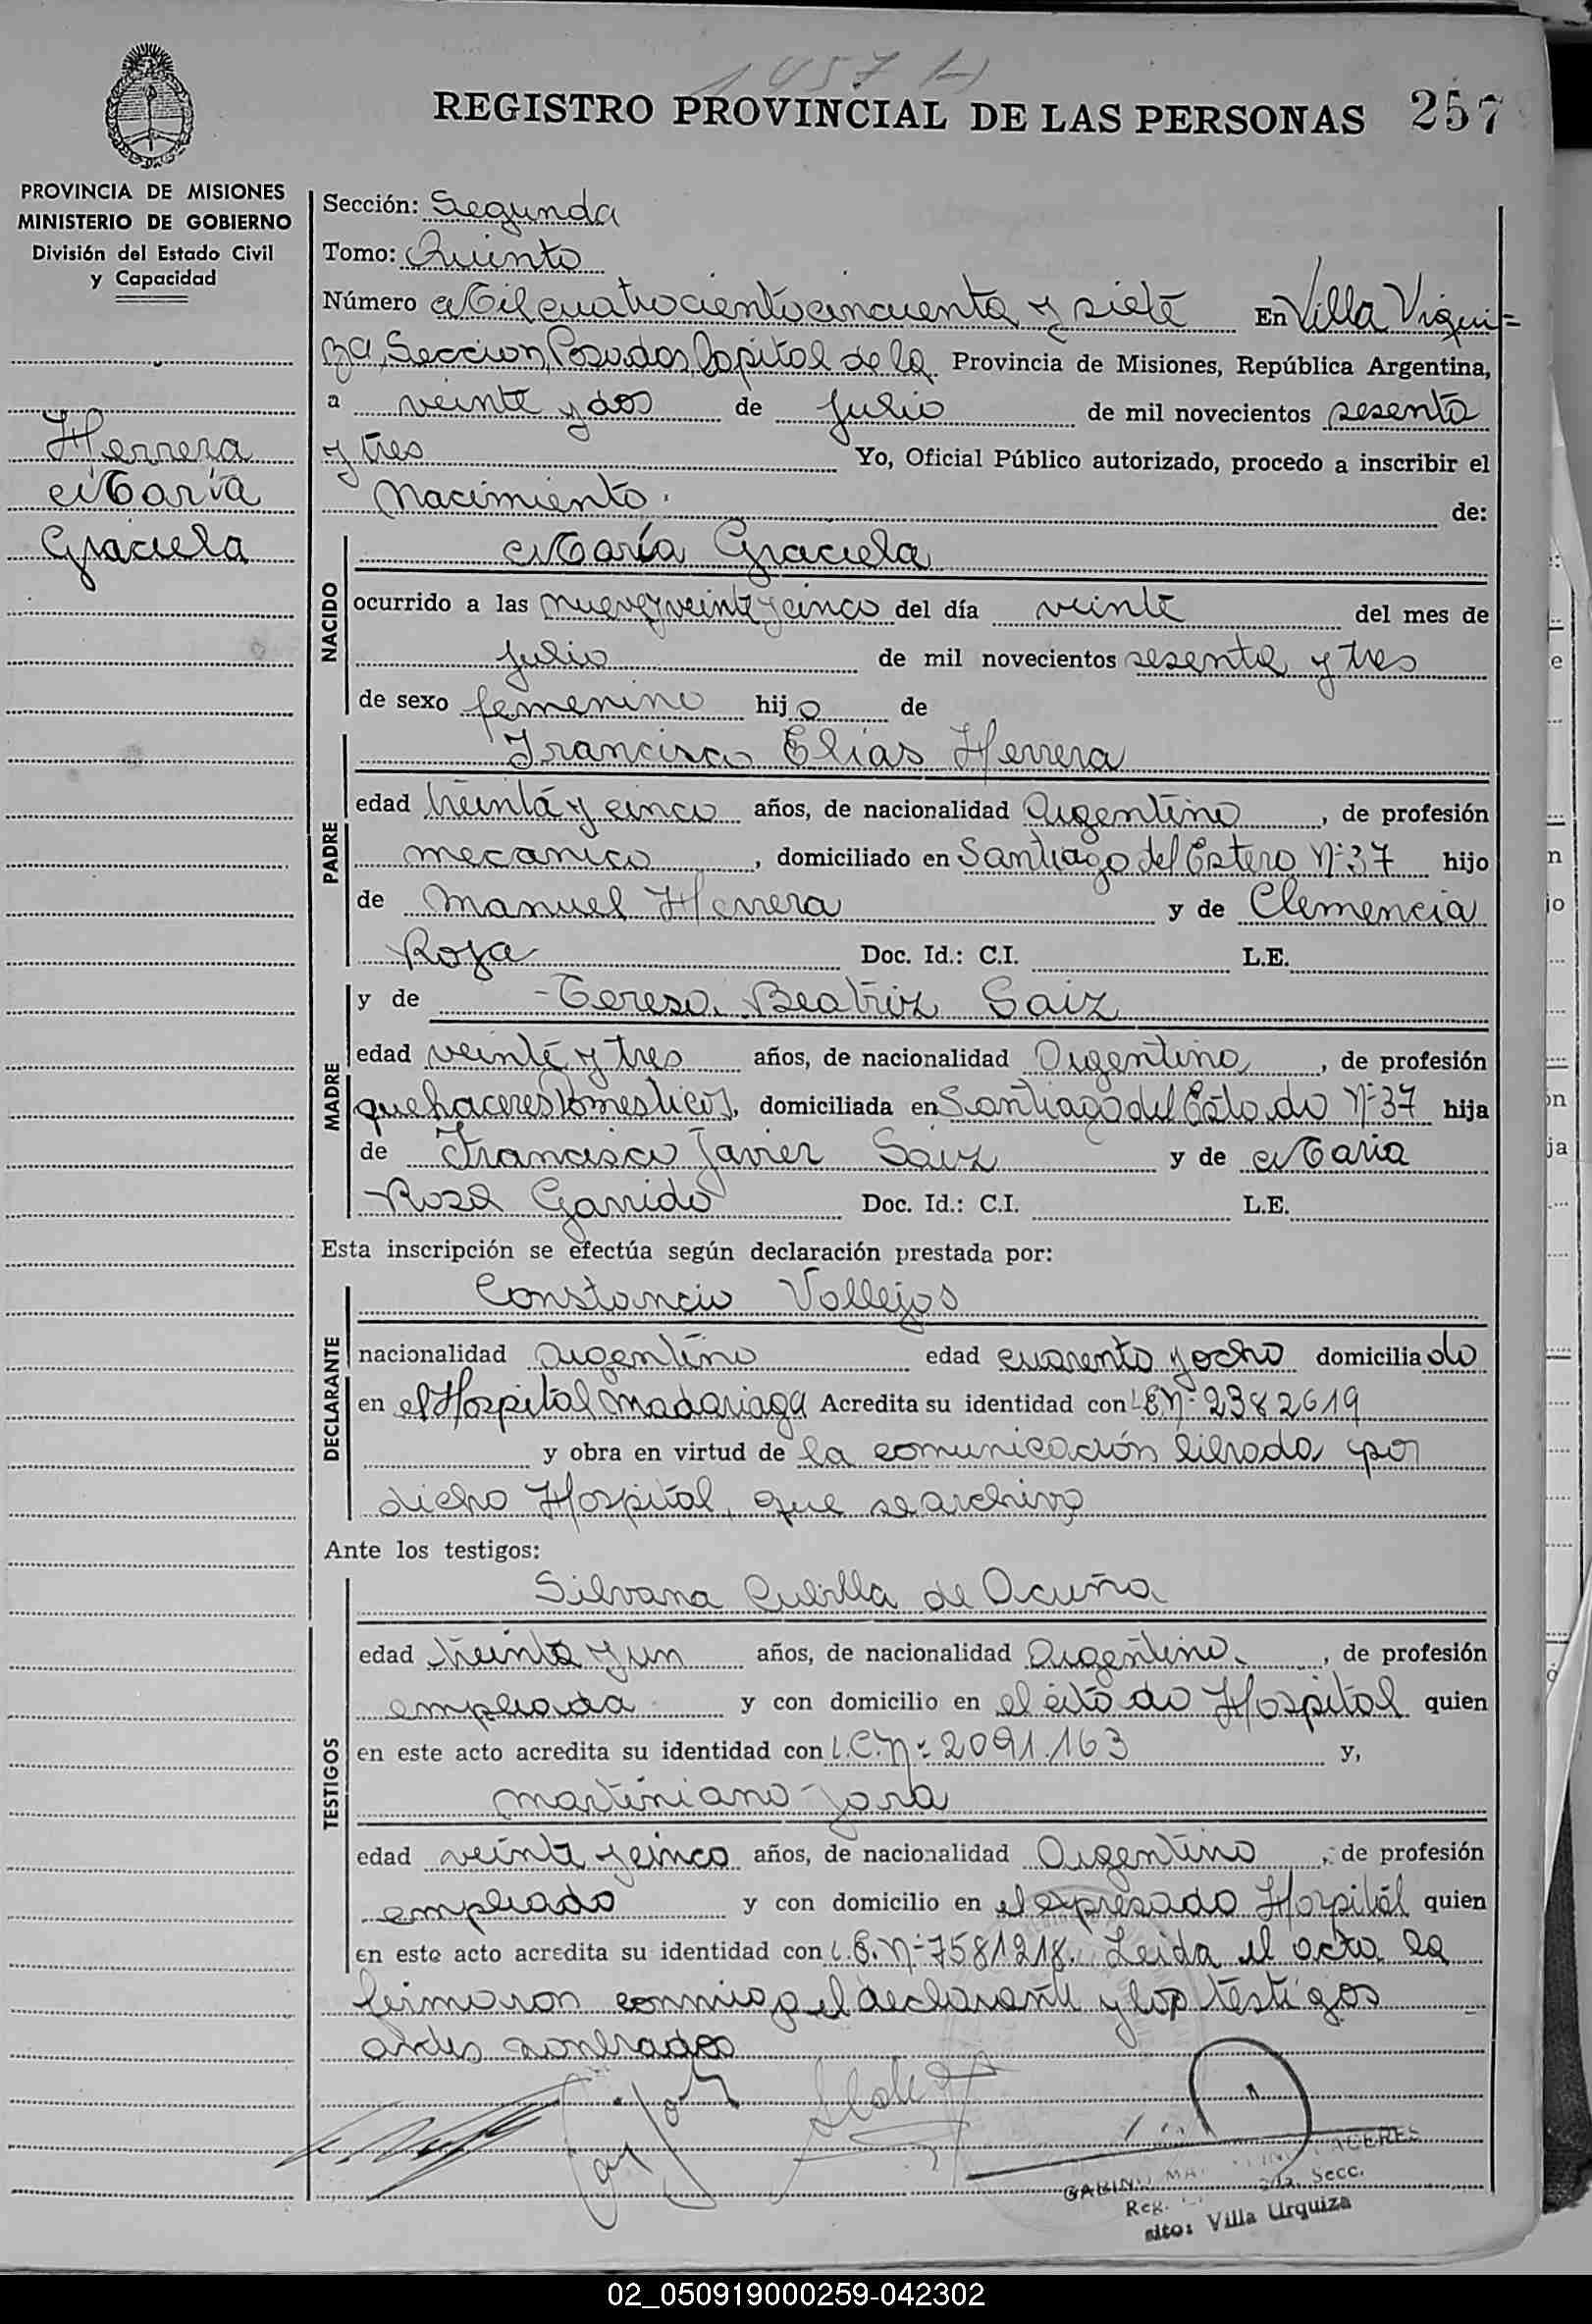 1457 H
REGISTRO PROVINCIAL DE LAS PERSONAS 257
PROVINCIA DE MISIONES
MINISTERIO DE GOBIERNO
División del Estado Civil
y Capacidad
Herrera
Maria
Graciela
Sección: Segunda
Tomo: Quinto
Número Mil cuatrocientocincuenta y siete En Villa Viqui=
za, Seccion, Posadas, Capital de la Provincia de Misiones, República Argentina,
a veinte y dos de Julio de mil novecientos sesenta
y tres Yo, Oficial Público autorizado, procedo a inscribir el
Nacimiento. de:
NACIDO
María Graciela
ocurrido a las nueve y veinte y cinco del día veinte del mes de
Julio de mil novecientos sesenta y tres
de sexo femenino hijo de
PADRE
Francisco Elias Herrera
edad treinta y cinco años, de nacionalidad Argentino, de profesión
mecanico, domiciliado en Santiago del Estero Nº 37 hijo
de Manuel Herrera y de Clemencia
Roza Doc. Id.: C.I. L.E.
MADRE
y de Teresa Beatriz Saiz
edad veinte y tres años, de nacionalidad Argentina, de profesión
quehaceres Domesticos, domiciliada en Santiago del Nº 37 hija
de Francisco Javier Saiz y de Maria
Rosa Garrido Doc. Id.: C.I. L.E.
Esta inscripción se efectúa según declaración prestada por:
DECLARANTE
Constancio Vallejos
nacionalidad argentino edad cuarenta y ocho domiciliado
en el Hospital Madariaga Acredita su identidad con L.E. Nº 2382619
y obra en virtud de la comunicación librada por
dicho Hospital, que se archiva
Ante los testigos:
TESTIGOS
Silvana Cubilla de Acuña
edad treinta y un años, de nacionalidad Argentina, de profesión
empleada y con domicilio en el citado Hospital quien
en este acto acredita su identidad con L.C. Nº 2091.163 y,
Martiniano Jara
edad veinte y cinco años, de nacionalidad Argentino, de profesión
empleado y con domicilio en el expresado Hospital quien
en este acto acredita su identidad con L.E. Nº 7581218. Leida el acta la
firmaron conmigo el declarante y los testigos
antes nombrados
GABINO CACERES
Reg. Secc.
sito: Villa Urquiza
02_050919000259-042302